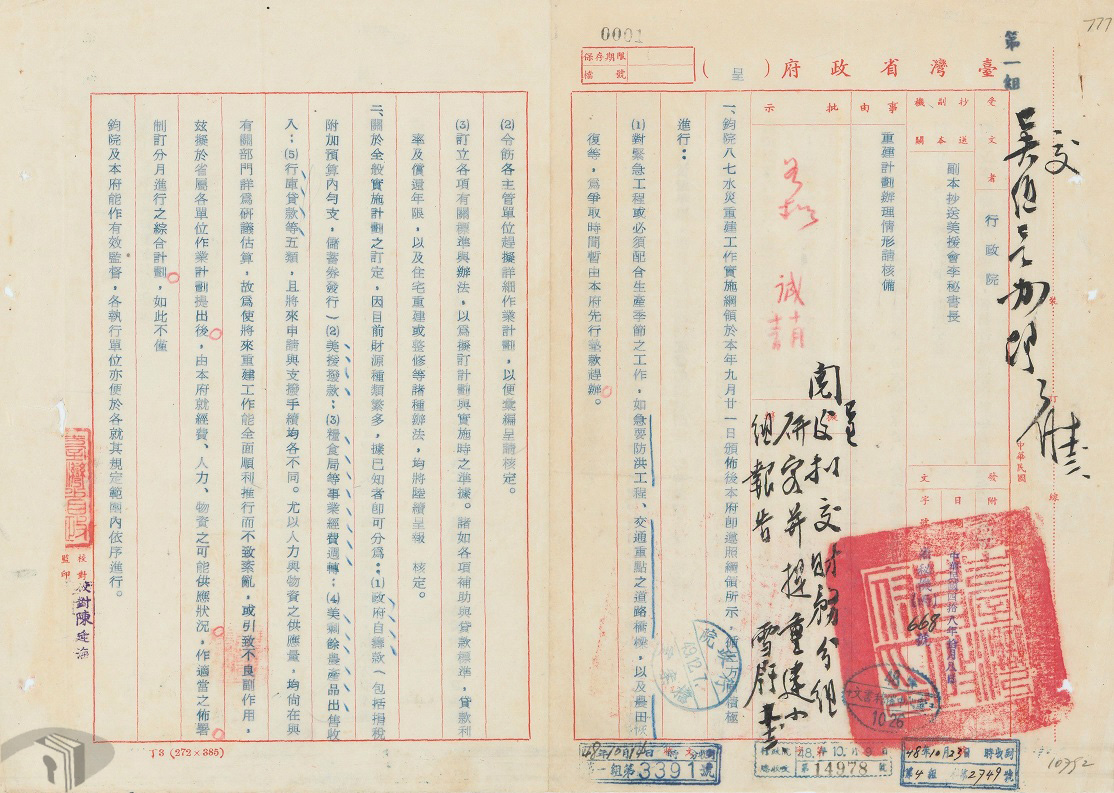 777
0001
第一組
保存期限
檔號
臺灣省政府（呈）
受文者
行政院
抄送副本機關
副本抄送美援會李秘書長
事由
重建計劃辦理情形請核備
批示
一、鈞院八七水災重建工作實施綱領於本年九月廿一日頒佈後本府即遵照綱領所示，循
進行：
(1)對緊急工程或必須配合生產季節之工作，如急要防洪工程、交通重點之道路橋樑，以及農田
復等，為爭取時間暫由本府先行墊款趕辦。
(2)令飭各主管單位趕擬詳細作業計劃，以便彙編呈請核定。
(3)訂立各項有關標準與辦法，以為擬訂計劃與實施時之準據。諸如各項補助與貸款標準，貸款利
率及償還年限，以及住宅重建或整修等諸種辦法，均將陸續呈報　核定。
二、關於全般實施計劃之訂定，因目前財源種類繁多，據已知者即可分為：(1)政府自籌款（包括捐稅
附加預算內勻支，儲蓄券發行）(2)美援撥款；(3)糧食局等事業經費週轉；(4)美剩餘農產品出售收
入；(5)行庫貸款等五類，且將來申請與支撥手續均各不同。尤以人力與物資之供應量，均尚在與
有關部門詳為研議估算，故為使將來重建工作能全面順利推行而不致紊亂，或引致不良副作用，
茲擬於省屬各單位作業計劃提出後，由本府就經費、人力、物資之可能供應狀況，作適當之佈署
制訂分月進行之綜合計劃，如此不僅
鈞院及本府能作有效監督，各執行單位亦便於各就其規定範圍內依序進行。
發文
附
日期
字號
中華民國
裝
訂
線
中華民國四十八年拾月
668
交
閱後擬交財務分組
研究并提重建小
組報告
校對
監印
校對陳
T3 (272×385)
48年10月14日
第一組第3391號
48.10.
第14978號
48年10月23日　時收到
第4組　第2749號
10752